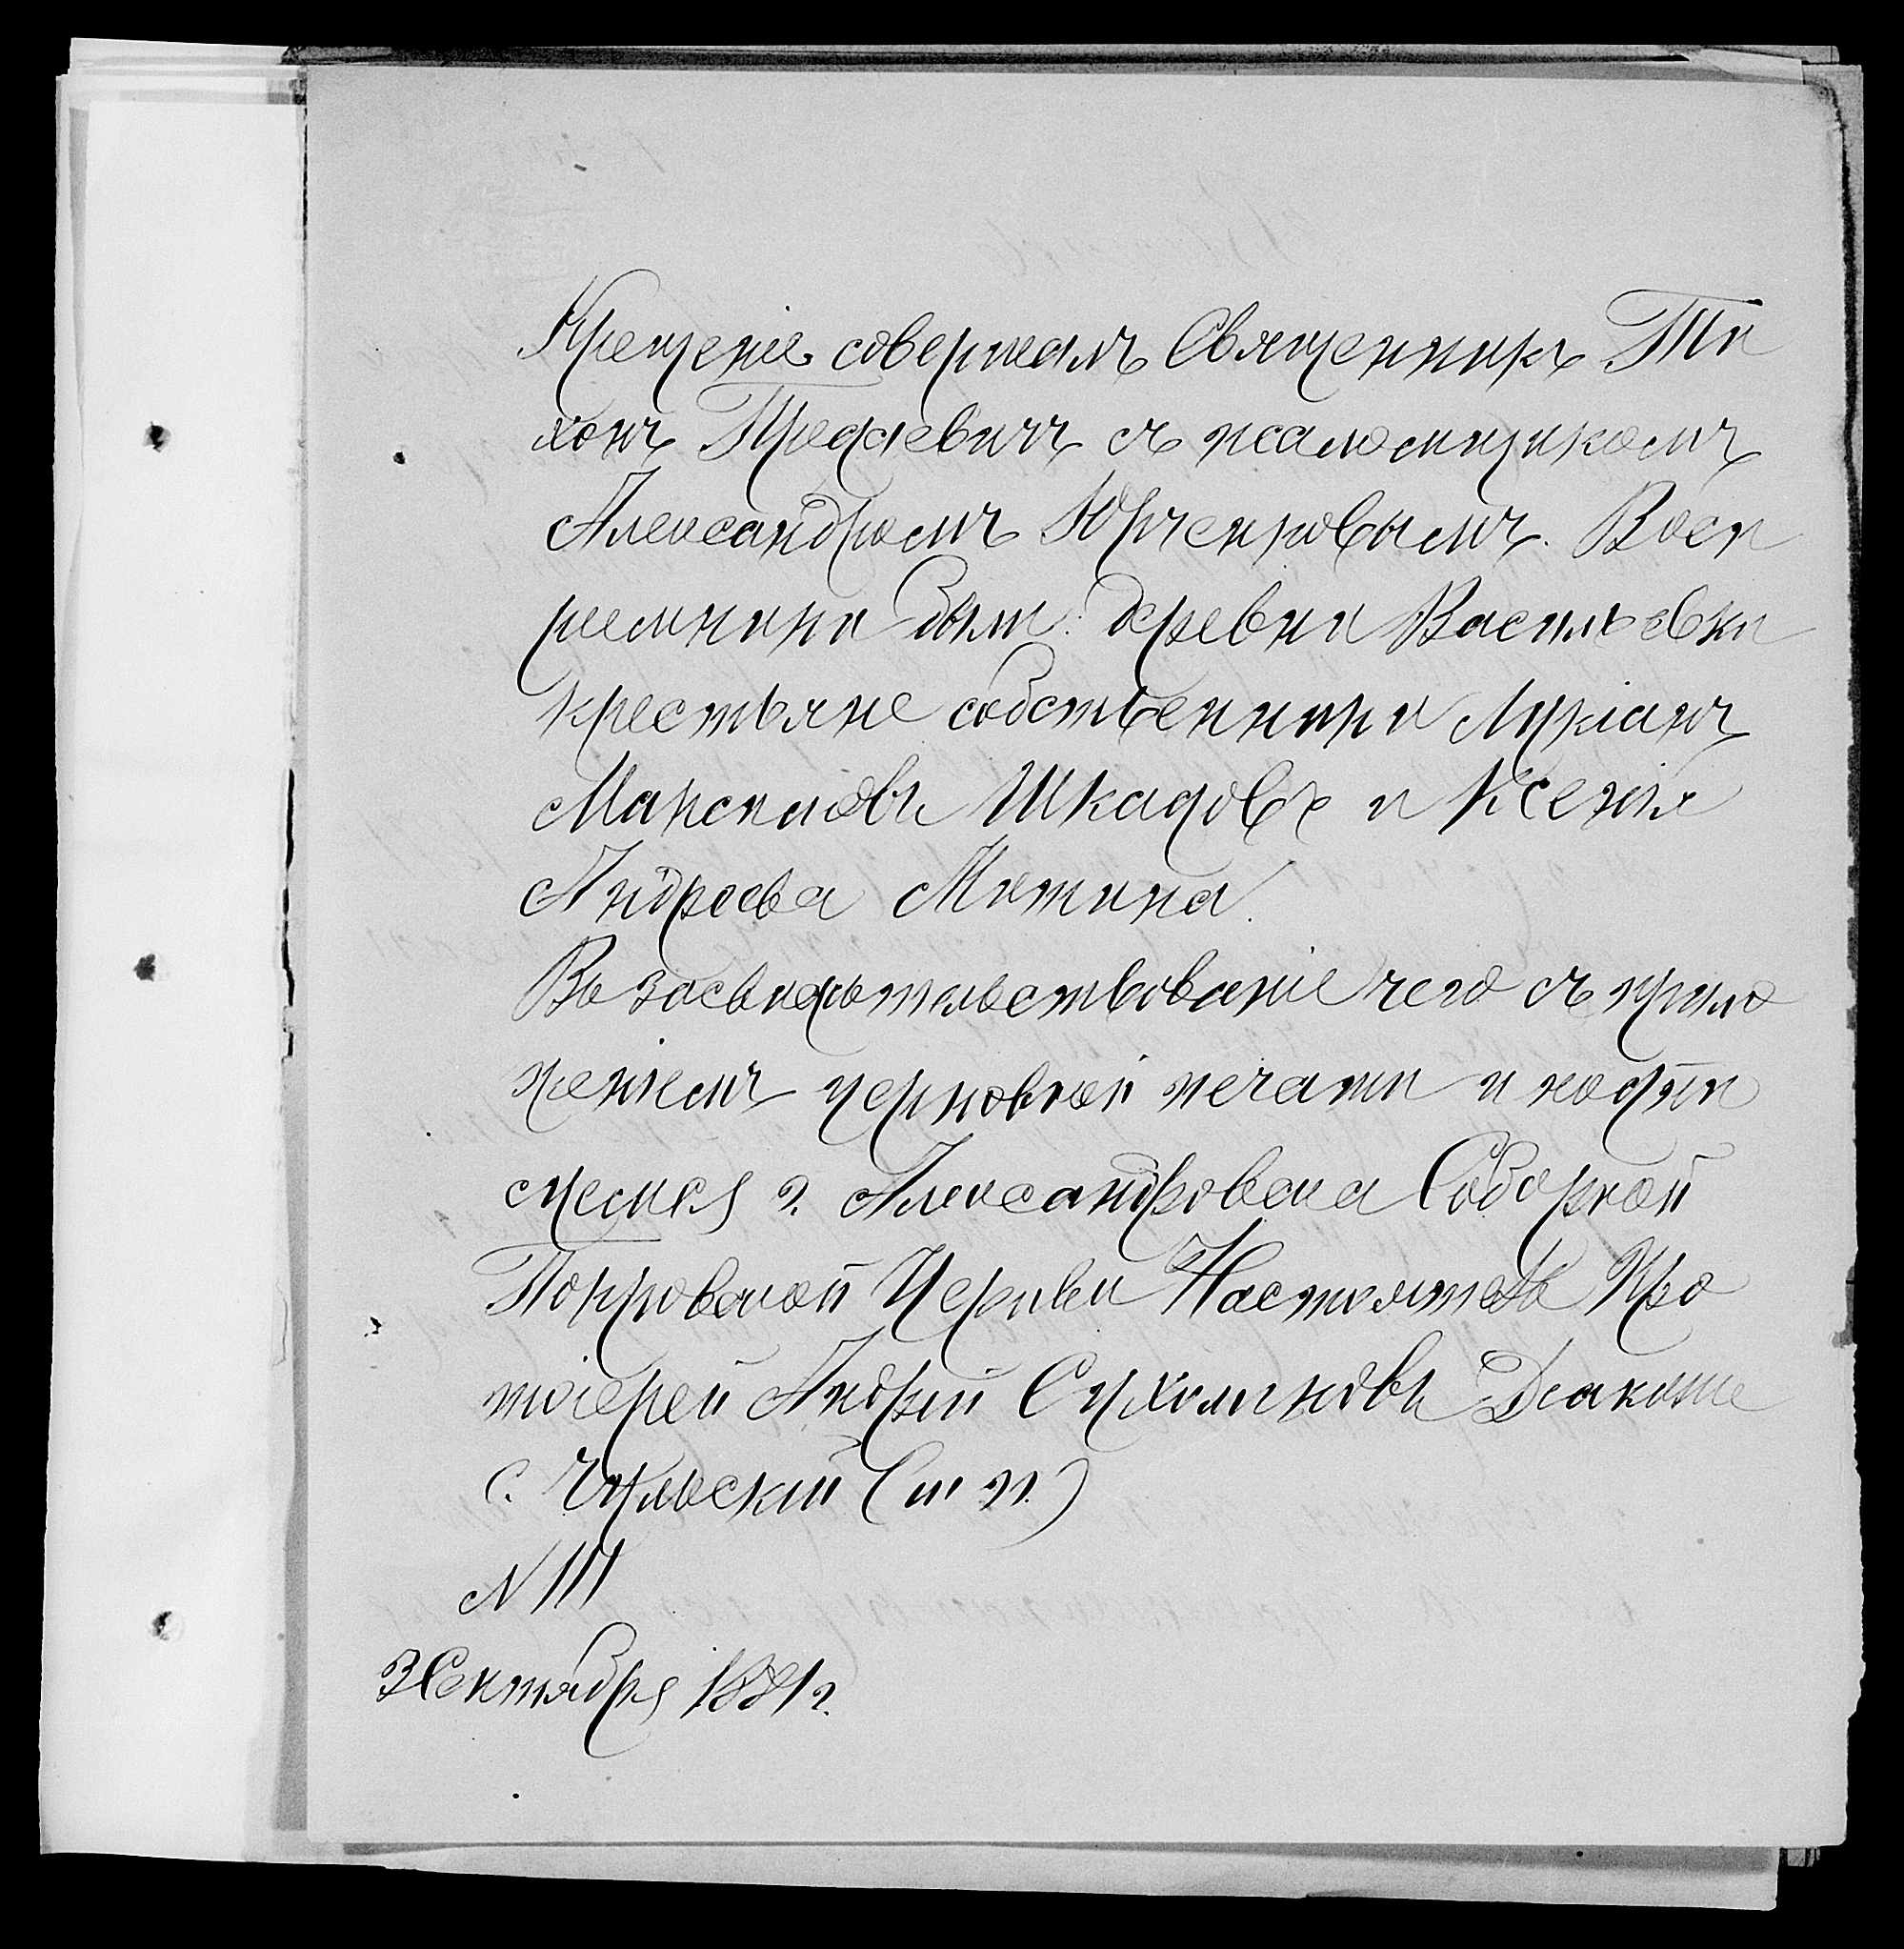 Крещеніе совершалъ Священникъ Ти
хонъ съ псаломщикомъ
Александромъ Юрченковымъ. Восп
реемники были: деревни Васильевки
крестьяне собственники Лукіанъ
Марковъ Шкадовъ и Ксенія
Андреева Митина.
Въ засвидѣтельствованіе чего съ прило
женіемъ церковной печати и подпи
суемся г. Александровска Соборной
Покровской Церкви Настоятель Про
тоіерей Андрей Сухомлиновъ Диаконъ
С. Чульскій (м п)
N 111
3 Сентября 1881 г.